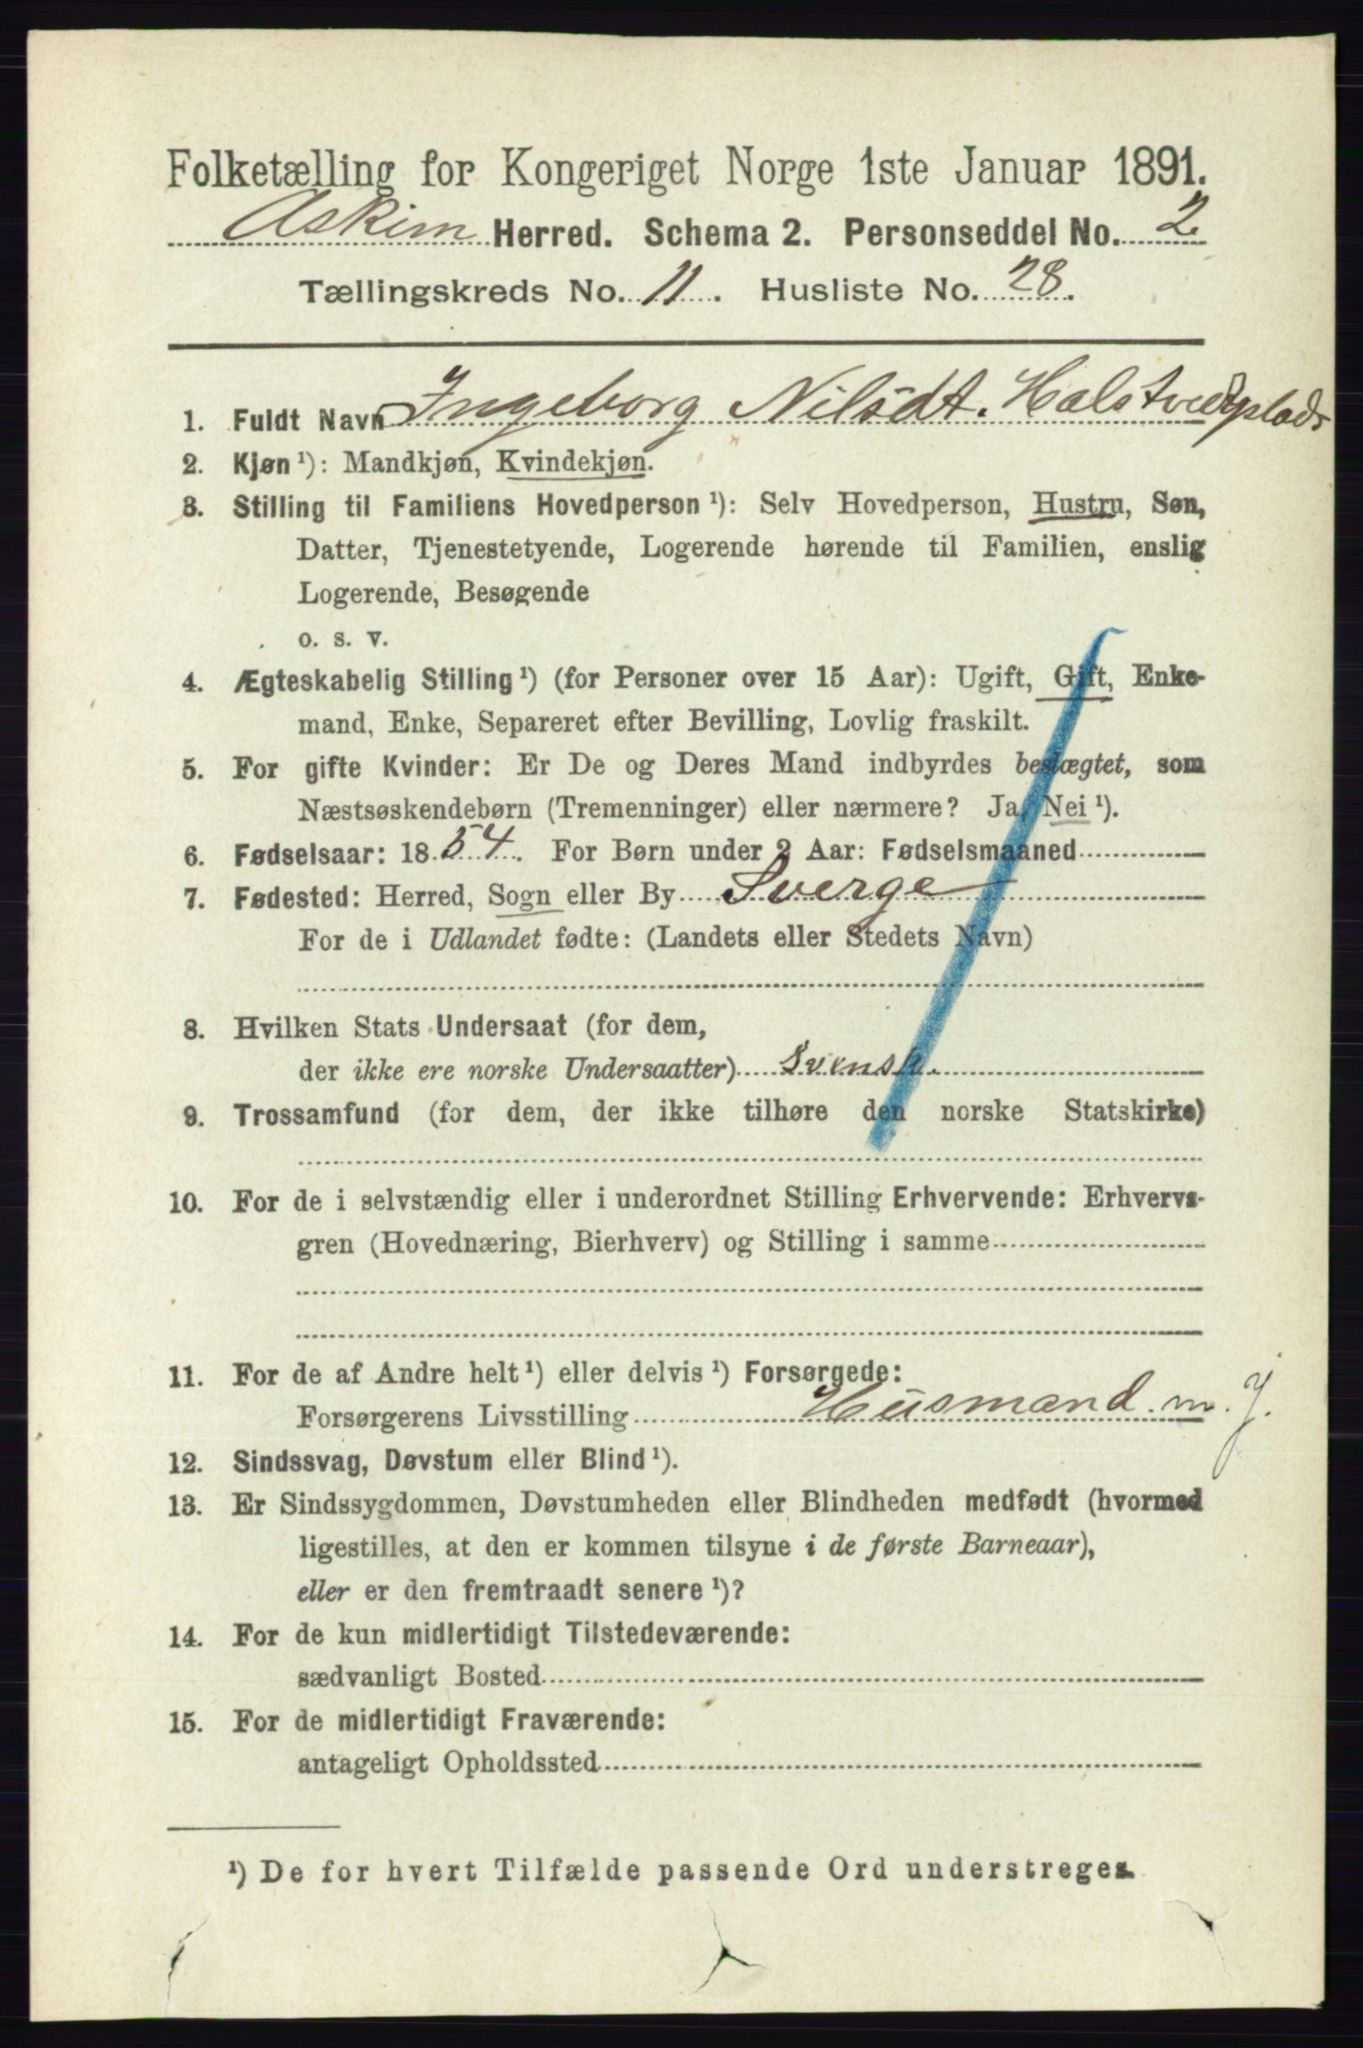 Folketælling for Kongeriget Norge 1ste Januar 1891.
Askim Herred. Schema 2. Personseddel No. 2
Tællingskreds No. 11. Husliste No. 28.
1. Fuldt Navn Ingeborg Nilsdt. Halstvedtplads
2. Kjøn ¹): Mandkjøn, Kvindekjøn.
3. Stilling til Familiens Hovedperson ¹): Selv Hovedperson, Hustru, Søn,
Datter, Tjenestetyende, Logerende hørende til Familien, enslig
Logerende, Besøgende
o. s. v.
4. Ægteskabelig Stilling ¹) (for Personer over 15 Aar): Ugift, Gift, Enke-
mand, Enke, Separeret efter Bevilling, Lovlig fraskilt.
5. For gifte Kvinder: Er De og Deres Mand indbyrdes beslægtet, som
Næstsøskendebørn (Tremenninger) eller nærmere? Ja, Nei ¹).
6. Fødselsaar: 1854. For Børn under 2 Aar: Fødselsmaaned
7. Fødested: Herred, Sogn eller By Sverge
For de i Udlandet fødte: (Landets eller Stedets Navn)
8. Hvilken Stats Undersaat (for dem,
der ikke ere norske Undersaatter) Svensk.
9. Trossamfund (for dem, der ikke tilhøre den norske Statskirke)
10. For de i selvstændig eller i underordnet Stilling Erhvervende: Erhvervs-
gren (Hovednæring, Bierhverv) og Stilling i samme
11. For de af Andre helt ¹) eller delvis ¹) Forsørgede:
Forsørgerens Livsstilling Husmand m. J.
12. Sindssvag, Døvstum eller Blind ¹).
13. Er Sindssygdommen, Døvstumheden eller Blindheden medfødt (hvormed
ligestilles, at den er kommen tilsyne i de første Barneaar),
eller er den fremtraadt senere ¹)?
14. For de kun midlertidigt Tilstedeværende:
sædvanligt Bosted
15. For de midlertidigt Fraværende:
antageligt Opholdssted
¹) De for hvert Tilfælde passende Ord understreges.